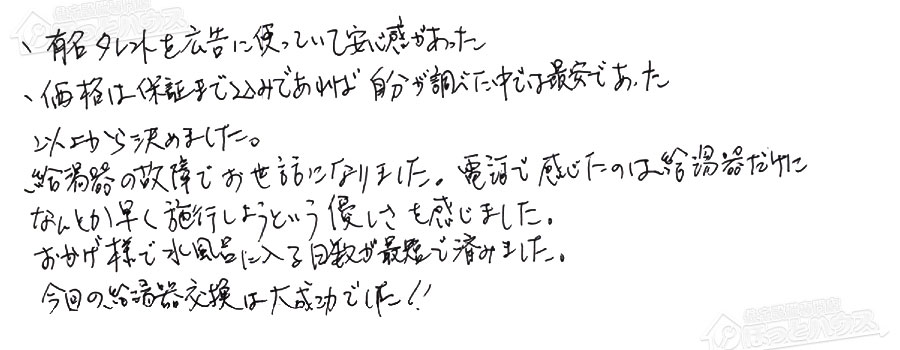 、有名タレントを広告に使っていて安心感があった
、価格は保証まで込みであれば自分が調べた中では最安であった
以上から決めました。
給湯器の故障でお世話になりました。電話で感じたのは給湯器だけに
なんとか早く施行しようという優しさを感じました。
おかげ様で水風呂に入る日数が最短で済みました。
今回の給湯器交換は大成功でした!!
ほっとハウス